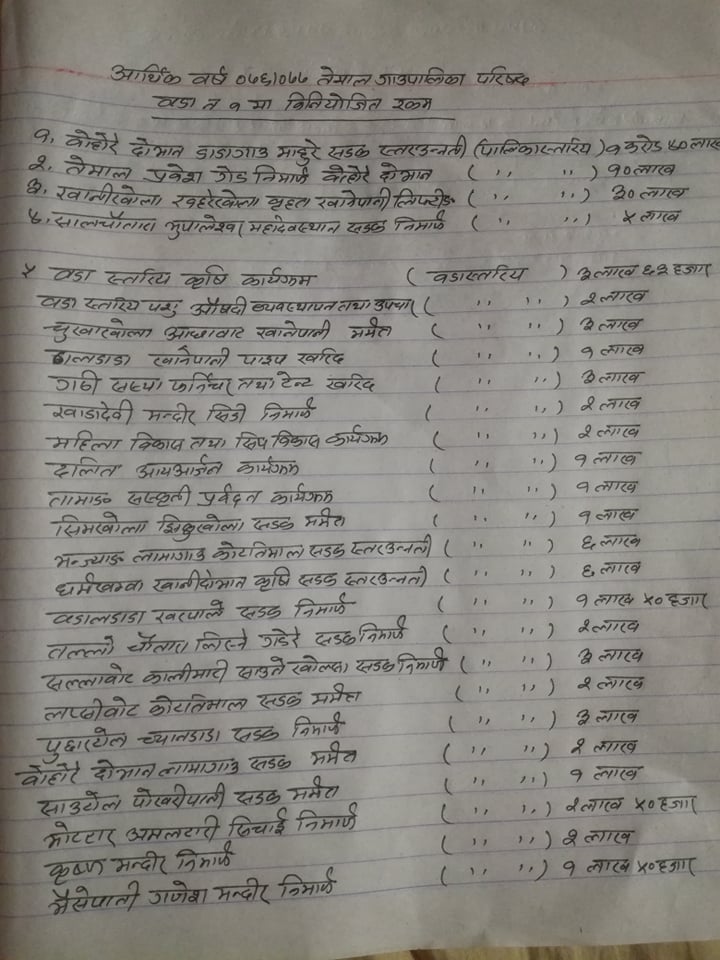 आर्थिक वर्ष ०७६।०७७ तेमाल गाउपालिका परिषद
वडा न १ मा विनियोजित रकम
१. कोहोरे दोभान डाडागाउ माहुरे सडक स्तरउन्नती (पालिकास्तरिय) १ करोड ५० लाख
२. तेमाल प्रवेश गेड निमार्ण कोहोरे दोभान ( ,, ,, ) १० लाख
३. खानीखोला खहरेखोला वृहत खानेपानी लिफ्टीङ ( ,, ,, ) ३० लाख
४. सालचौतारा भुपालेश्वर महादेवस्थान सडक निमार्ण ( ,, ,, ) ५ लाख
५ वडा स्तरिय कृषि कार्यक्रम ( वडास्तरिय ) ३ लाख ६२ हजार
वडा स्तरिय पशु औषदी व्यवस्थापन तथा उपचार ( ,, ,, ) २ लाख
चुखाखोला खानेपानी मर्मत ( ,, ,, ) ३ लाख
डालडाडा खानेपानी पाइप खरिद ( ,, ,, ) १ लाख
गुठी सस्था फर्निचर तथा टेन्ट खरिद ( ,, ,, ) ३ लाख
खाडादेवी मन्दीर सिडी निमार्ण ( ,, ,, ) २ लाख
महिला विकास तथा सिप विकास कार्यक्रम ( ,, ,, ) २ लाख
दलित आयआर्जन कार्यक्रम ( ,, ,, ) १ लाख
तामाङ सस्कृती प्रर्वद्दन कार्यक्रम ( ,, ,, ) १ लाख
सिमखोला झिकुखोला सडक मर्मत ( ,, ,, ) १ लाख
भन्ज्याङ लामागाउ कोटतिमाल सडक स्तरउन्नती ( ,, ,, ) ६ लाख
धर्मखम्बा खानीदोभान कृषि सडक स्तरउन्नती ( ,, ,, ) ६ लाख
वडालडाडा खरपाले सडक निमार्ण ( ,, ,, ) १ लाख ५० हजार
तल्लो चौतारा लिस्ने गडेरे सडक निमार्ण ( ,, ,, ) २ लाख
सल्लाबोट कालीमाटी साउने खोल्सा सडक निमार्ण ( ,, ,, ) ३ लाख
लप्सीबोट कोटतिमाल सडक मर्मत ( ,, ,, ) २ लाख
च्यानडाडा सडक निमार्ण ( ,, ,, ) ३ लाख
कोहोरे दोभान लामागाउ सडक मर्मत ( ,, ,, ) २ लाख
साउटोल पोखरीपाली सडक मर्मत ( ,, ,, ) १ लाख
अमलटारी सिचाई निमार्ण ( ,, ,, ) २ लाख ५० हजार
कृष्ण मन्दीर निमार्ण ( ,, ,, ) २ लाख
भैसेपाती गणेश मन्दीर निमार्ण ( ,, ,, ) १ लाख ५० हजार